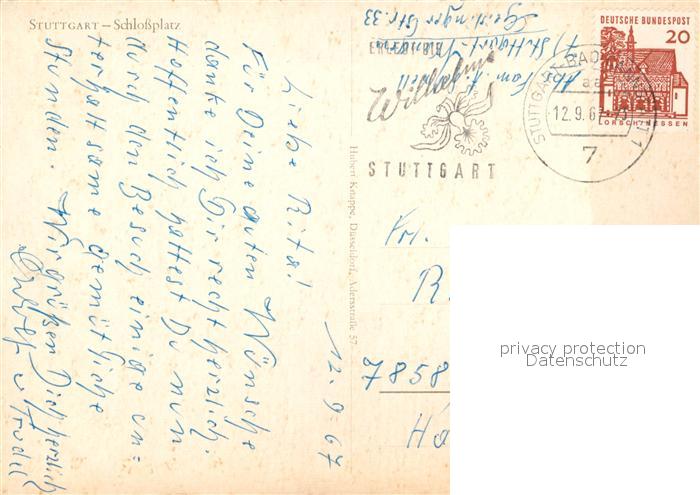 STUTTGART – Schloßplatz
12.9.67
Liebe Rita!
Für Deine guten Wünsche
danke ich Dir recht herzlich.
Hoffentlich hattest Du nun
durch den Besuch einige un=
terhaltsame gemütliche
Stunden. Wir grüßen Dich herzlich
u Trudel
Hubert Knappe, Düsseldorf, Adersstraße 57
Abs. Fam.
Stuttgart
Geislinger Str. 33
ERLEBT DIE
Wilhelma
STUTTGART
STUTTGART-BAD CANNSTATT 1
aa
12.9.67
7
DEUTSCHE BUNDESPOST
20
LORSCH/HESSEN
Frl.
R
7858
privacy protection
Datenschutz